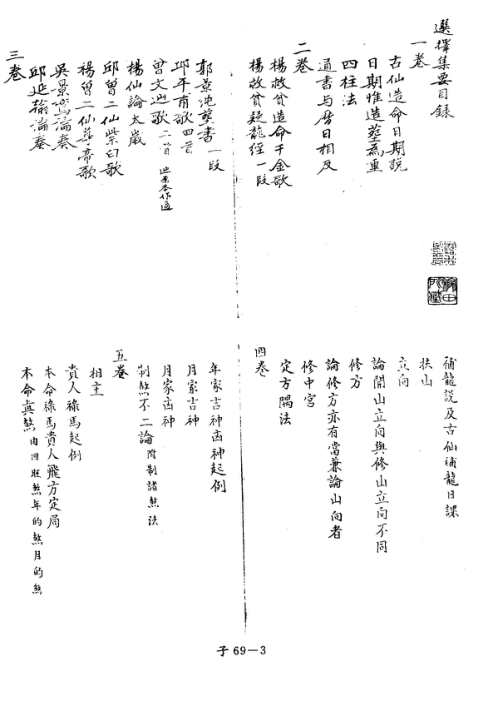 選擇集要目錄
一卷
古仙造命日期說
日期惟造葬為重
四柱法
通書与曆日相反
二卷
楊救貧造命千金歌
楊救貧疑龍經一段
郭景純葬書一段
邱平甫歌四首
曾文辿歌二首
楊仙論太歲
邱曾二仙紫白歌
楊曾二仙尊帝歌
吳景鸞論奏
邱延翰論奏
三卷
補龍說及古仙補龍日課
扶山
立向
論開山立向與修山立向不同
修方
論修方亦有當兼論山向者
修中宮
定方隅法
四卷
年家吉神凶神起例
月家吉神
月家凶神
制煞不二論附制諸煞法
五卷
相主
貴人祿馬起例
本命祿馬貴人飛方定局
本命真煞由四旺煞年的煞月的煞
子69—3